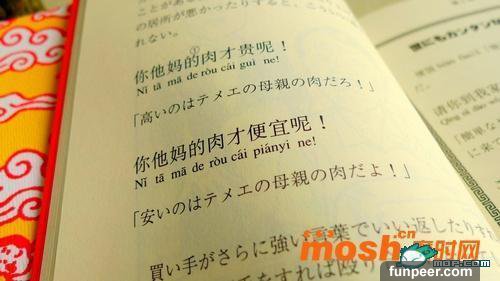 ことがあ
の居所が悪かったりすると、こ
れない。
你他妈的肉才贵呢！
Nǐ tā mā de ròu cái guì ne!
「高いのはテメエの母親の肉だろ！」
你他妈的肉才便宜呢！
Nǐ tā mā de ròu cái piányi ne!
「安いのはテメエの母親の肉だよ！」
買い手がさらに強い言葉でいい返したりす
をすれば殴り
にもカンタン
请你到我
Qǐng nǐ dào
「簡単な
に来て
mosh.cn
时网
MOP.com
funpeer.com